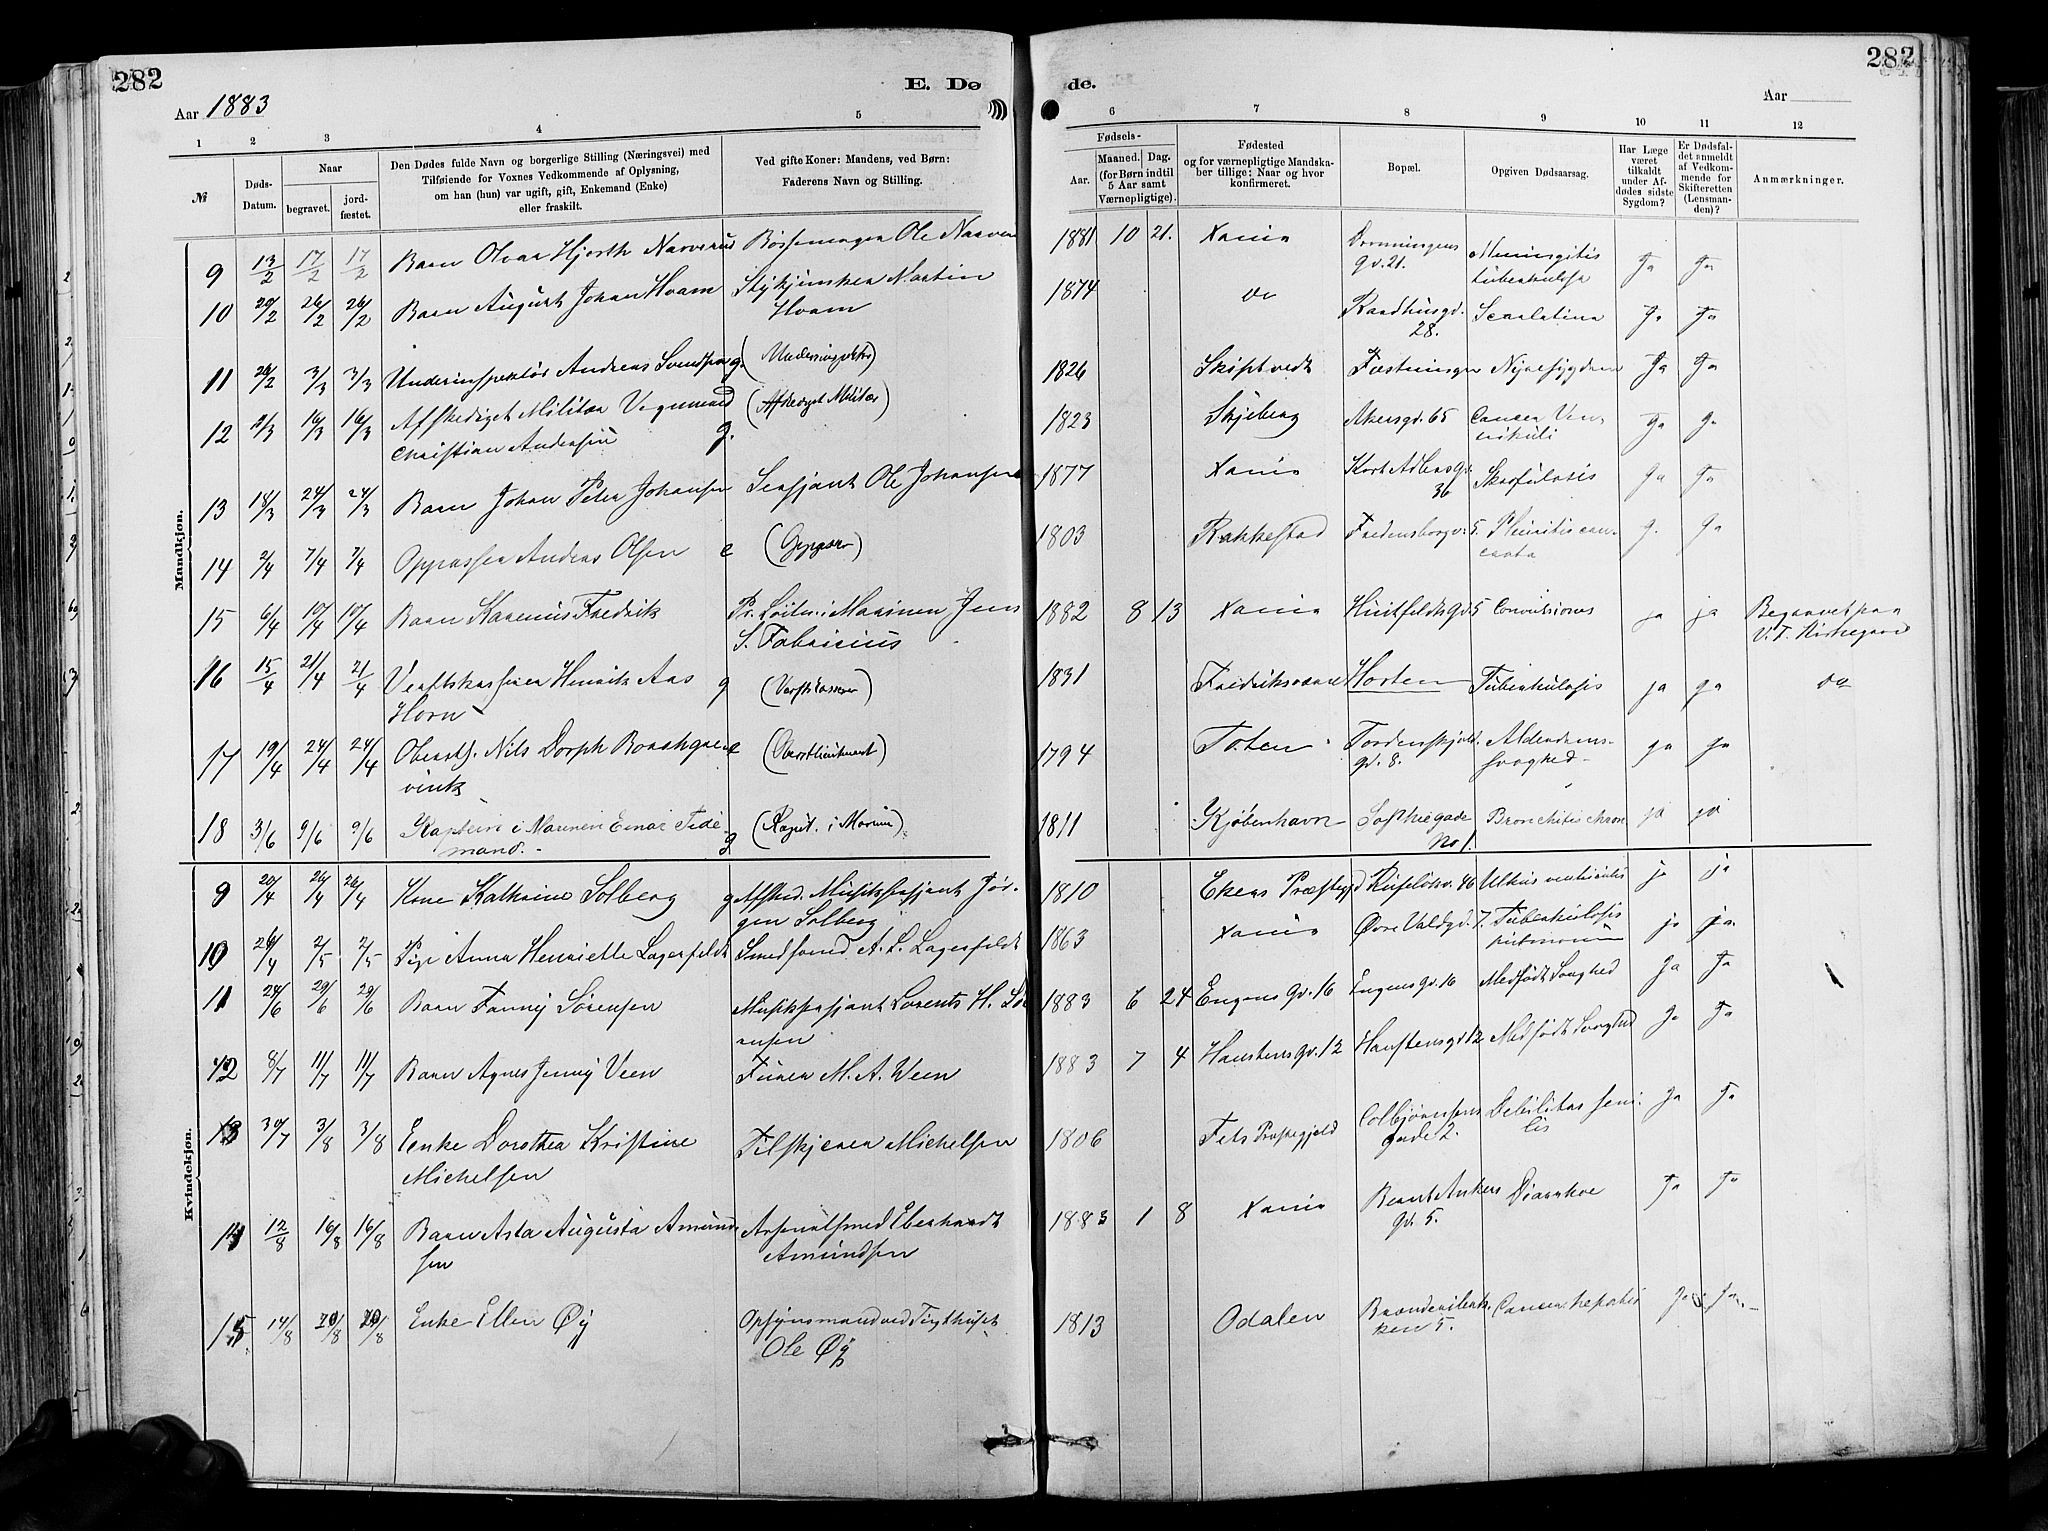 282
E. Dø
de.
282
Aar 1883
Aar
1 2 3 4 5 6 7 8 9 10 11 12
№
Døds-Datum.
Naar
begravet.
jord-fæstet.
Den Dødes fulde Navn og borgerlige Stilling (Næringsvei) med
Tilføiende for Voxnes Vedkommende af Oplysning,
om han (hun) var ugift, gift, Enkemand (Enke)
eller fraskilt.
Ved gifte Koner: Mandens, ved Børn:
Faderens Navn og Stilling.
Fødsels-
Aar.
Maaned. Dag.
(for Børn indtil
5 Aar samt
Værnepligtige).
Fødested
og for værnepligtige Mandska-
ber tillige: Naar og hvor
konfirmeret.
Bopæl.
Opgiven Dødsaarsag.
Har Læge
været
tilkaldt
under Af-
dødes sidste
Sygdom?
Er Dødsfal-
det anmeldt
af Vedkom-
mende for
Skifteretten
(Lensman-
den)?
Anmærkninger.
Mandkjøn.
9 13/2 17/2 17/2 Barn Olvar Hjorth Narverud Bøssemager Ole Narve 1881 10 21. Xania Dronningens Meningitis Ja Ja
gd. 21. tuberkulosa
10 20/2 26/2 26/2 Barn August Johan Hvam Stykjunker Martin 1874 do Raadhusgd. Scarlatina Ja Ja
Hvam 28.
11 26/2 3/3 3/3 Underinspektør Andreas Svendsen g. 1826 Skiptvedt Fæstningen Nyresygdom Ja Ja
12 11/3 16/3 16/3 Afskediget Militær (Afskediget Militær) 1823 Skjeberg Akersgd. 65 Cancer Ven- Ja Ja
Christian Andersen g. trikuli
13 18/3 24/3 24/3 Barn Johan Peter Johansen Sersjant Ole Johansen 1877 Xania Kort Adlersgd. Skrofulosis Ja Ja
36
14 2/4 7/4 7/4 Oppasser Andreas Olsen e (Oppasser) 1803 Rakkestad Fredensborgv. 5. Ja Ja
15 6/4 10/4 10/4 Barn Karenius Fredrik Pr. Løitn. i Marinen Jens 1882 8 13 Xania Huitfeldtsgd. 5 Convulsiones ja ja Begravet paa
S. Fabricius V. F. Kirkegaard
16 15/4 21/4 21/4 Verftskasserer Henrik Aas g (Verftskasserer) 1831 Fredriksværn Horten Tuberkulosis ja ja do
Horn
17 19/4 24/4 24/4 Oberstl. Nils Dorph (Oberstlieutenant) 1794 Toten Tordenskjolds Alderdoms- ja ja
gd. 8. svaghed
18 3/6 9/6 9/6 Kaptein i Marinen Einar Tide- (Kapit. i Marine) 1811 Kjøbenhavn Sofhiegade Bronchitis chron ja ja
mand. g No 1.
Kvindekjøn.
9 20/4 26/4 26/4 Kone Kathrine Solberg g Afsked. Musiksersjant Jør- 1810 Ekers Præstegjd 46 Ulkus ventriculi ja ja
gen Solberg
10 26/4 2/5 2/5 Pige Anna Henriette Lagerfeldt Smedsvend A. L. Lagerfeldt 1863 Xania Øvre Voldgd. 7. Tuberkulosis ja ja
pulmonum
11 24/6 29/6 29/6 Barn Fanny Sørensen Musiksersjant Lorents H. Sør 1883 6 24 Engens gd. 16 Engens gd. 16 Medfødt Svaghed Ja Ja
ensen
12 8/7 11/7 11/7 Barn Agnes Jenny Veen Furer M. A. Ween 1883 7 4 Haustensgd. 12 Haustensgd 12 Medfødt Svaghed Ja Ja
13 30/7 3/8 3/8 Enke Dorothea Kristine Tilskjærer Michelsen 1806 Fets Præstegjeld Colbjørnsens Debilitas seni- Ja Ja
Michelsen gade 2. lis
14 12/8 16/8 16/8 Barn Asta Augusta Amund- Arsenalsmed Eberhardt 1883 1 8 Xania Bernt Ankers Diarrhoe Ja Ja
sen Amundsen gd. 5.
15 14/8 20/8 20/8 Enke Ellen Øy Opsynsmand ved Tugthuset 1813 Odalen Cancer hepatis Ja Ja
Ole Øy 5.